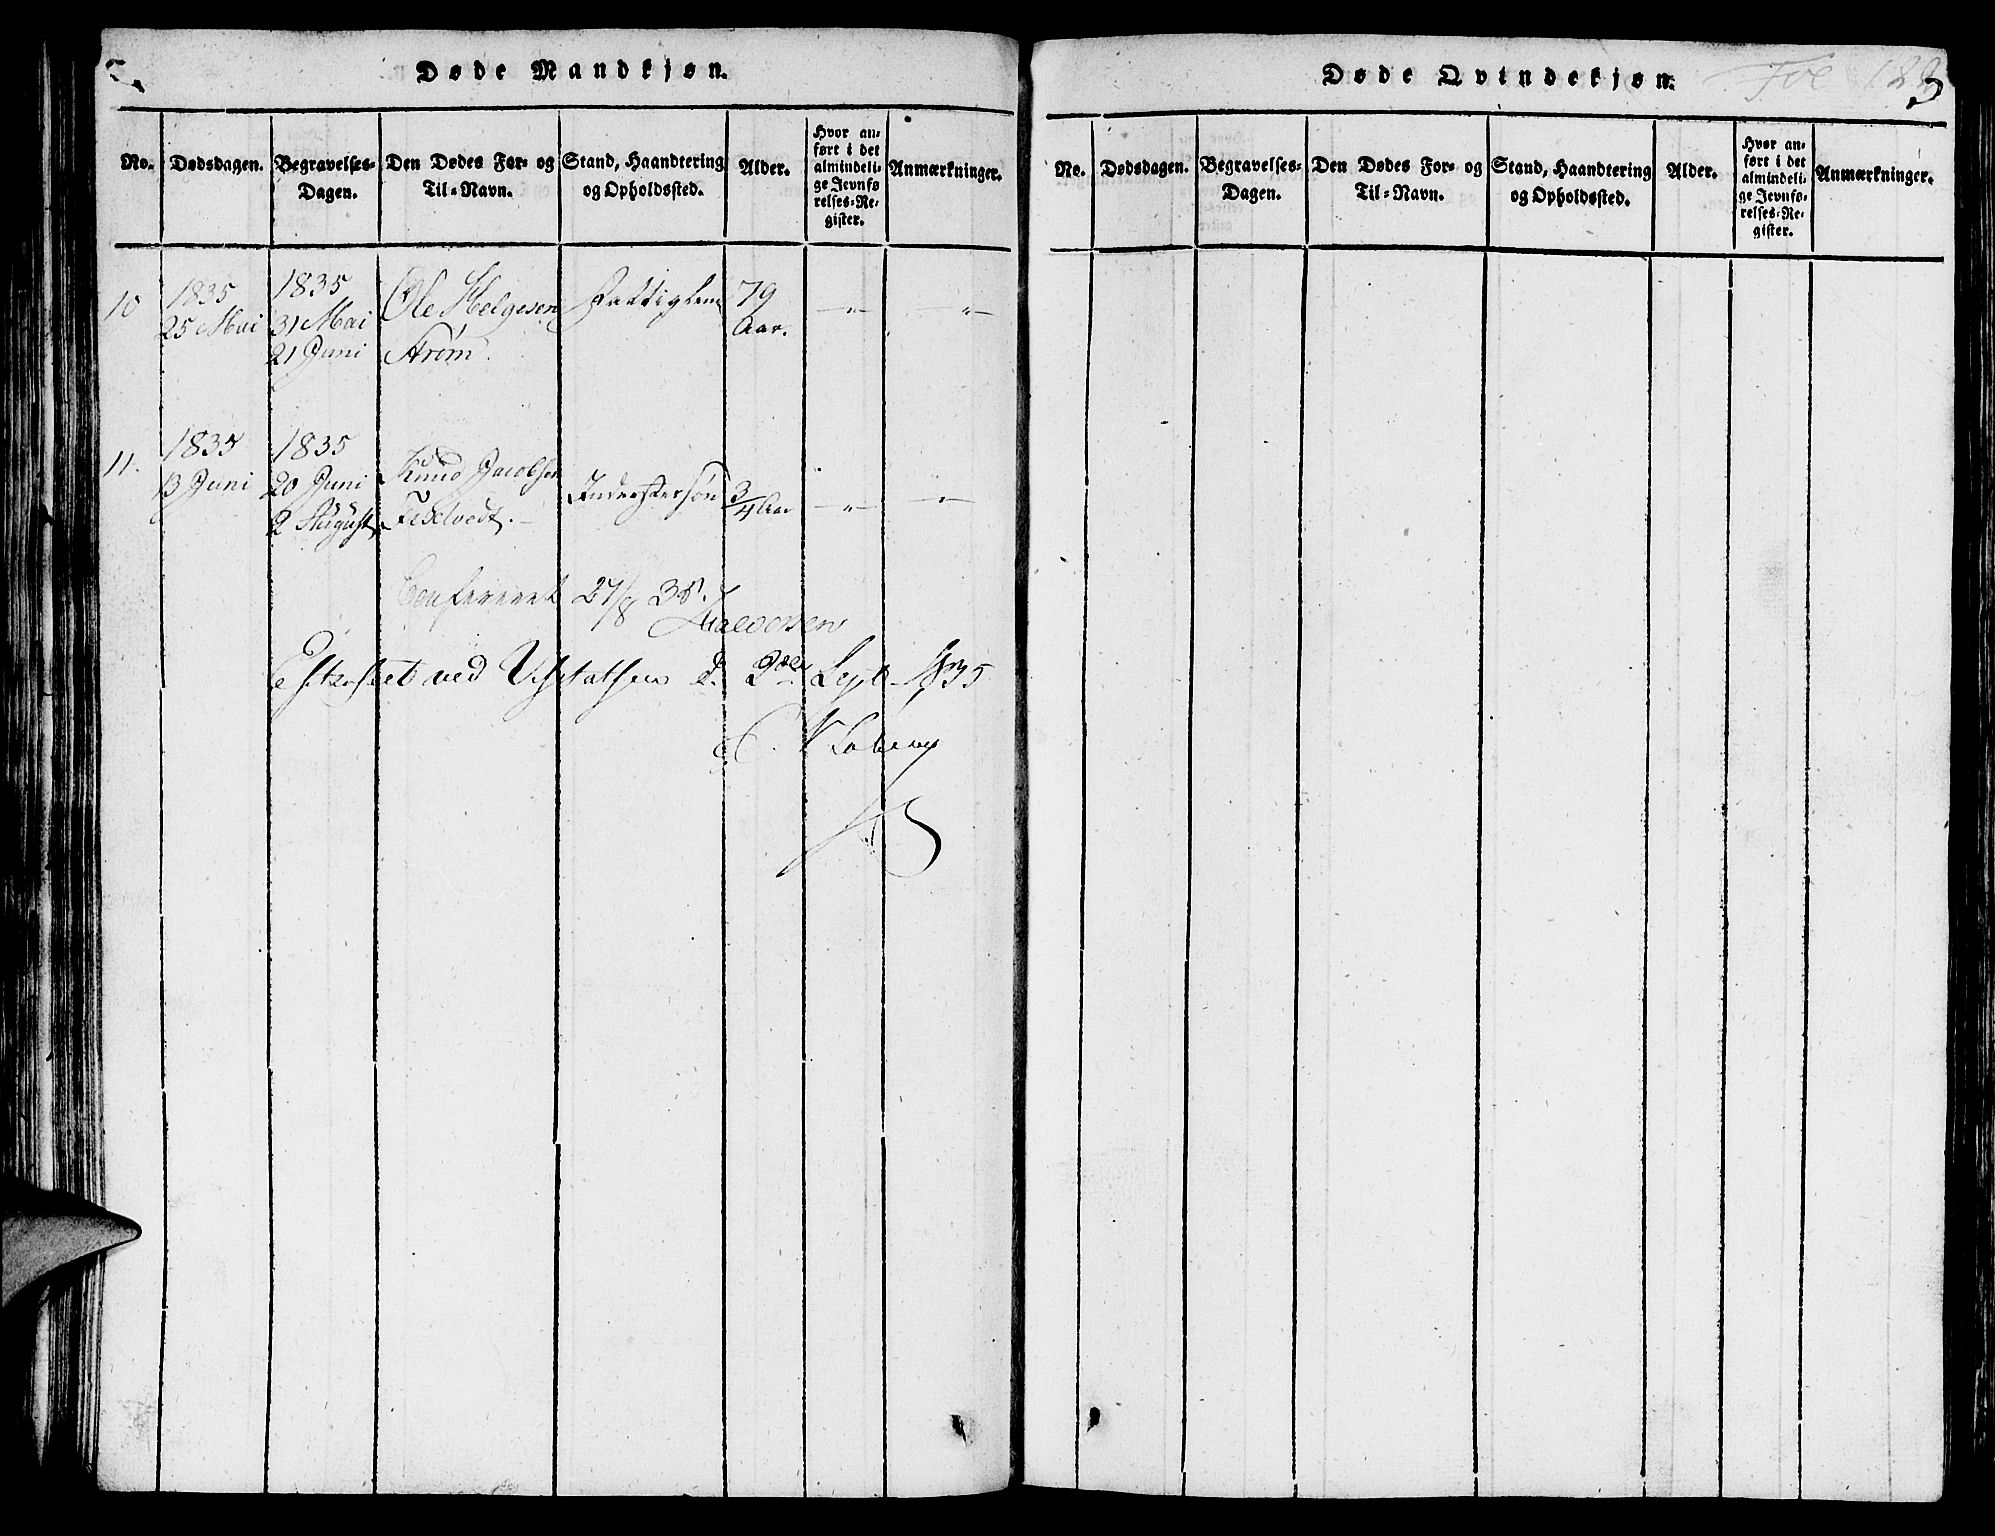 Døde Mandkjøn.
No. Dødsdagen. Begravelses-Dagen. Den Dødes For- og Til-Navn. Stand, Haandtering og Opholdssted. Alder. Hvor anført i det almindelige Jevnførelses-Register. Anmærkninger.
10 1835 25 Mai 1835 31 Mai 21 Juni Ole Helgesen Strøm Fattiglem 79 Aar. -"- -"-
11. 1835 13 Juni 1835 20 Juni 2 August Knud Jacobsen Fixtvedt. Inderstersøn 3/4 Aar -"- -"-
Confereret 27/8 35. Halvorsen
Efterseet ved Visitatsen d. Sept 1835
Døde Qvindekjøn.
Fol 122
No. Dødsdagen. Begravelses-Dagen. Den Dødes For- og Til-Navn. Stand, Haandtering og Opholdssted. Alder. Hvor anført i det almindelige Jevnførelses-Register. Anmærkninger.